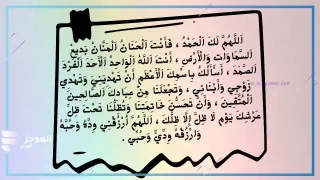 اَللَّهُمَّ لَكَ اَلْحَمْدُ ، فَأَنْتَ اَلْحَنَانُ اَلْمَنَّانُ بَدِيعُ
اَلسَّمَاوَاتِ وَالْأَرْضِ ، أَنْتَ اَللَّهُ اَلْوَاحِدُ اَلْأَحَدُ اَلْفَرْدُ
اَلصَّمَدُ ، أَسْأَلُكَ بِاسْمِكَ اَلْأَعْظَمِ أَنْ تَهْدِيَنِيَ وَتَهْدِيَ
زَوْجِيَ وَأَبْنَائِي ، وَتَجْعَلَنَا مِنْ عِبَادِكَ اَلصَّالِحِينَ
اَلْمُتَّقِينَ ، وَأَنْ تُحْسِنَ خَاتِمَتَنَا وَتُظِلَّنَا تَحْتَ ظِلِّ
عَرْشِكَ يَوْمَ لَا ظِلَّ إِلَّا ظِلُّكَ ، اَللَّهُمَّ اُرْزُقْنِي وِدَّهُ وَحُبَّهُ
وَارْزُقْهُ وِدِّيَّ وَحُبِّيَ .
الموجز